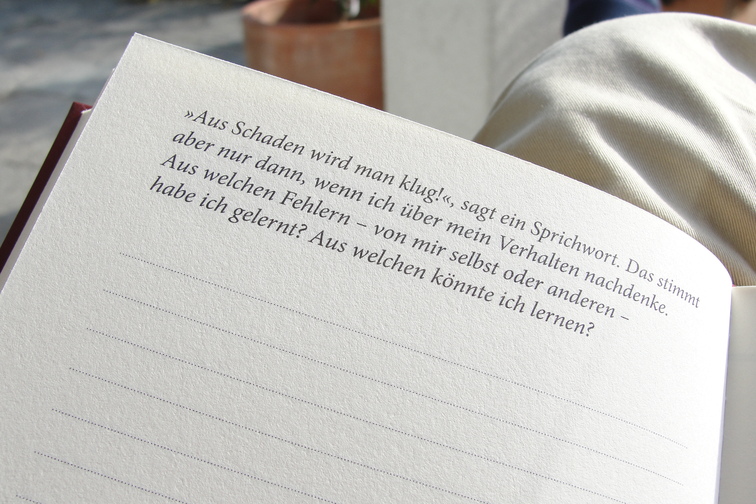 »Aus Schaden wird man klug!«, sagt ein Sprichwort. Das stimmt
aber nur dann, wenn ich über mein Verhalten nachdenke.
Aus welchen Fehlern – von mir selbst oder anderen –
habe ich gelernt? Aus welchen könnte ich lernen?